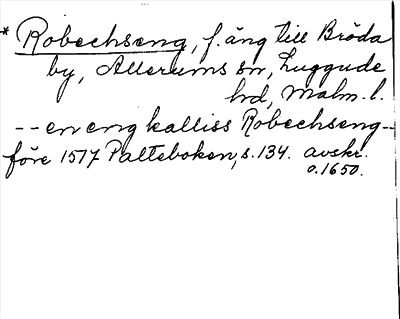 * Robechseng, f. äng till Bröda
by, Allerums sn, Luggude
hd, Malm. l.
-- en eng kalliss Robechseng --
före 1517 Palteboken, s. 134. avskr.
o. 1650.